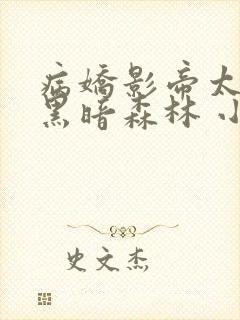 病嬌影帝太
黑暗森林 小
史文杰